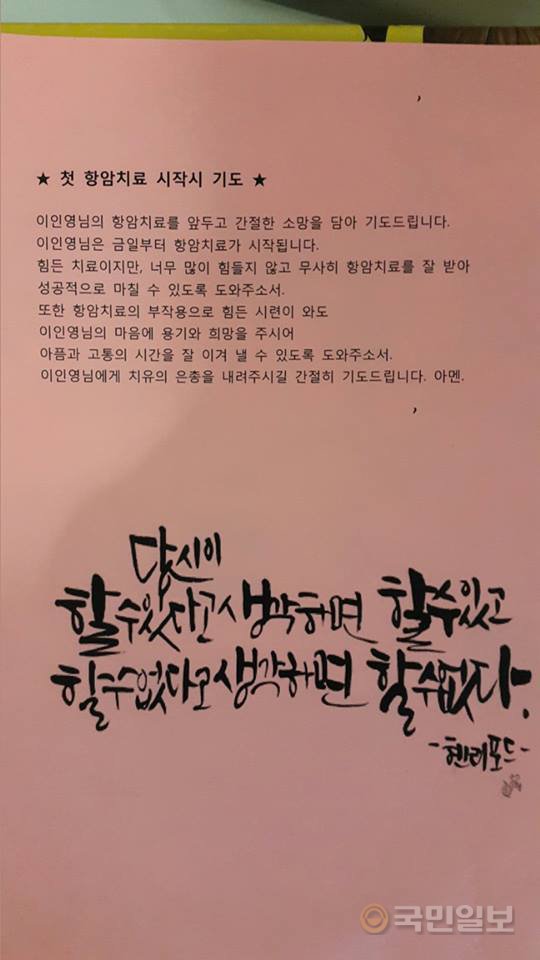 ★ 첫 항암치료 시작시 기도 ★
이인영님의 항암치료를 앞두고 간절한 소망을 담아 기도드립니다.
이인영님은 금일부터 항암치료가 시작됩니다.
힘든 치료이지만, 너무 많이 힘들지 않고 무사히 항암치료를 잘 받아
성공적으로 마칠 수 있도록 도와주소서.
또한 항암치료의 부작용으로 힘든 시련이 와도
이인영님의 마음에 용기와 희망을 주시어
아픔과 고통의 시간을 잘 이겨 낼 수 있도록 도와주소서.
이인영님에게 치유의 은총을 내려주시길 간절히 기도드립니다. 아멘.
당신이
할수있다고생각하면 할수있고
할수없다고생각하면 할수없다.
-헨리포드-
국민일보